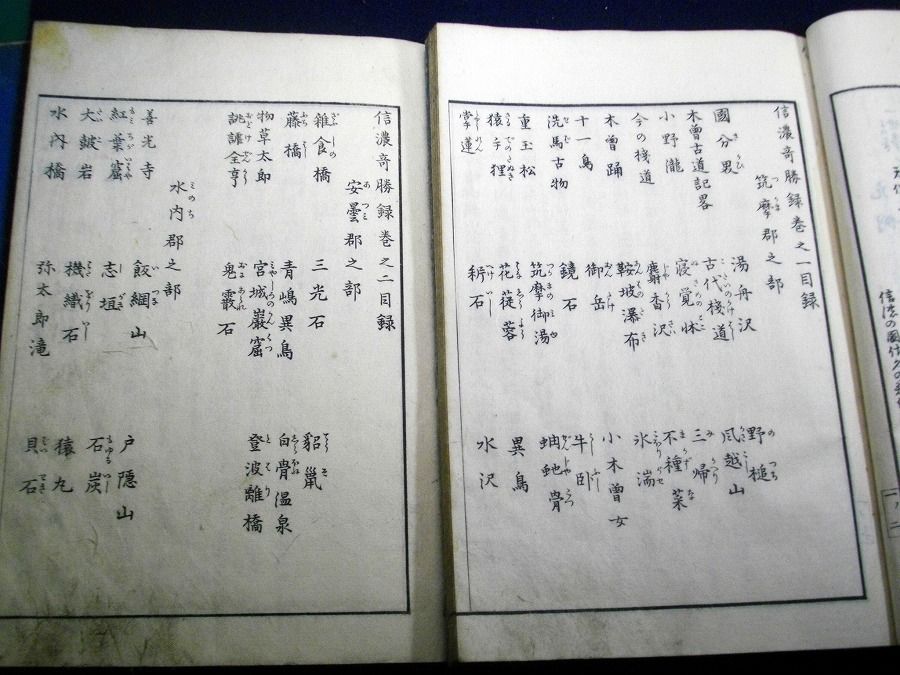 信濃奇勝録巻之一目録
筑摩郡之部
湯舟沢
野槌
國分男
古代棧道
風越山
木曽古道記畧
寝覚牀
三帰
小野瀧
麝香沢
不種菜
今の棧道
鞍坡瀑布
氷湍
木曽踊
御岳
小木曽女
十一鳥
鏡石
牛卧
洗馬古物
筑摩御湯
蚺虵骨
重玉松
花蓯蓉
異鳥
猿手狸
石
水沢
掌蓮
信濃奇勝録巻之二目録
安曇郡之部
三光石
貂鼠
雑食橋
青嶋異鳥
白骨温泉
藤橋
宮城巌窟
登波離橋
物草太郎
鬼霰石
水内郡之部
飯綱山
戸隠山
善光寺
志垣
石炭
紅葉窟
機織石
猿丸
大皷岩
弥太郎滝
貝石
水内橋